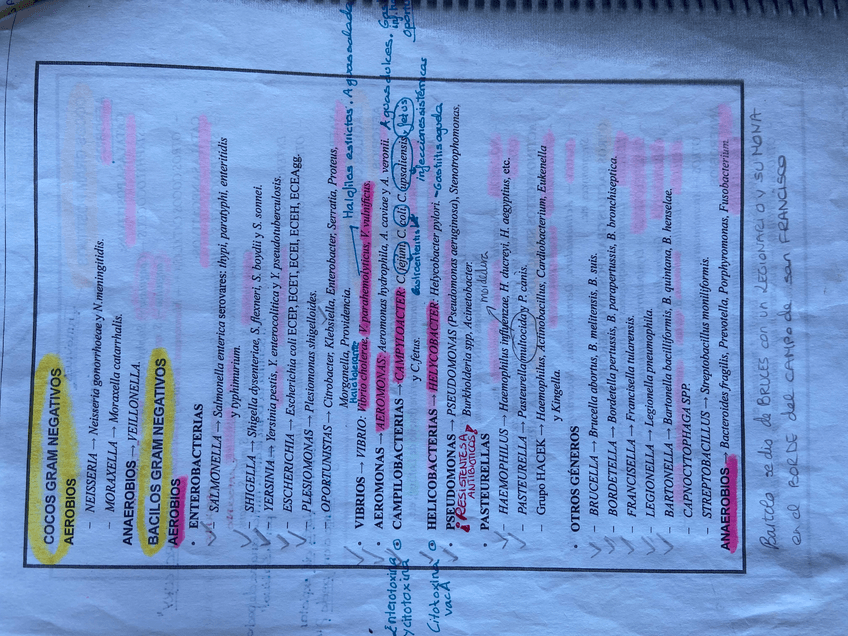 COCOS GRAM NEGATIVOS
AEROBIOS
– NEISSERIA → Neisseria gonorrhoeae y N. meningitidis.
– MORAXELLA → Moraxella catarrhalis.
ANAEROBIOS → VEILLONELLA.
BACILOS GRAM NEGATIVOS
AEROBIOS
• ENTEROBACTERIAS
– SALMONELLA → Salmonella enterica serovares: thypi, paratyphi, enteritidis
y typhimurium.
– SHIGELLA → Shigella dysenteriae, S. flexneri, S. boydii y S. sonnei.
– YERSINIA → Yersinia pestis, Y. enterocolitica y Y. pseudotuberculosis.
– ESCHERICHIA → Escherichia coli ECEP, ECET, ECEI, ECEH, ECEAgg.
– PLESIOMONAS → Plesiomonas shigelloides.
– OPORTUNISTAS → Citrobacter, Klebsiella, Enterobacter, Serratia, Proteus,
Morganella, Providencia.
Halofilos estrictos. Aguas saladas
Halotolerante
• VIBRIOS → VIBRIO: Vibrio cholerae, V. parahemolyticus, V. vulnificus.
• AEROMONAS → AEROMONAS: Aeromonas hydrophila, A. caviae y A. veronii. Aguas dulces.
Enterotoxina
y citotoxina
• CAMPILOBACTERIAS → CAMPYLOACTER: C. jejuni, C. coli, C. upsaliensis, fetus
y C. fetus.
Gastroenteritis
infecciones sistémicas
Citotoxina
vacA
• HELICOBACTERIAS → HELYCOBACTER: Helycobacter pylori. - Gastritis aguda
• PSEUDOMONAS → PSEUDOMONAS (Pseudomonas aeruginosa), Stenotrophomonas,
Burkholderia spp. Acinetobacter.
¡RESISTENTES A
ANTIBIOTICOS!
• PASTEURELLAS
mordedura
– HAEMOPHILUS → Haemophilus influenzae, H. ducreyi, H. aegyptius, etc.
– PASTEURELLA → Pasteurella multocida y P. canis.
– Grupo HACEK → Haemophilus, Actinobacillus, Cardiobacterium, Eukenella
y Kingella.
• OTROS GÉNEROS
– BRUCELLA → Brucella abortus, B. melitensis, B. suis.
– BORDETELLA → Bordetella pertussis, B. parapertussis, B. bronchiseptica.
– FRANCISELLA → Francisella tularensis.
– LEGIONELLA → Legionella pneumophila.
– BARTONELLA → Bartonella bacilliformis, B. quintana, B. henselae.
– CAPNOCYTOPHAGA SPP.
– STREPTOBACILLUS → Streptobacillus moniliformis.
ANAEROBIOS → Bacteroides fragilis, Prevotella, Porphyromonas, Fusobacterium.
Bartolo se dio de BRUCES con un LEGIONARIO y SU MONA
en el BORDE del CAMPO de san FRANCISCO